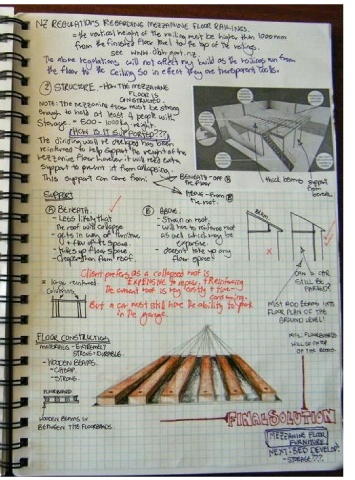 NZ REGULATIONS REGARDING MEZZANINE FLOOR RAILINGS.
= the vertical height of the railing must be higher than 1000mm
from the finished floor level to the top of the railings.
see www.dbh.govt.nz
The above regulations will not affect my build as the railings run from
the floor to the ceiling so in effect they are transparent walls.
② STRUCTURE - HOW THE MEZZANINE
FLOOR IS
CONSTRUCTED.
NOTE: The mezzanine floor must be strong
enough to hold at least 4 people with
Storage = 800 - 1000kg weight.
HOW IS IT SUPPORTED???
The dividing wall re developed has been
reinforced to help support the weight of the
mezzanine floor however it will need extra
support to prevent it from collapsing.
This support can come from:
BENEATH - off
the floor Ⓐ
ABOVE - from
the roof. Ⓑ
thick beams support
from beneath.
Support
Ⓐ BENEATH.
- Less likely that
the roof will collapse
- gets in way of furniture
+ flow of the space.
- takes up floor space
- Cheaper than roof.
Ⓑ ABOVE.
- Strain on roof.
- will have to reinforce roof
as well which may be
expensive.
- doesn't take up any
floor space!
Beam.
Client prefers as a collapsed roof is
EXPENSIVE to repair, + Reinforcing
the current roof is very costly + time-
consuming.
But a car must still have the ability to park
in the garage.
= large reinforced
columns
CAN A CAR
STILL BE
PARKED?
MUST ADD BEAMS INTO
FLOOR PLAN OF THE
GROUND LEVEL!
FLOOR CONSTRUCTION
MATERIALS - EXTREMELY
STRONG + DURABLE.
- WOODEN BEAMS.
- CHEAP
- STRONG.
FLOORBOARD
WOODEN BEAMS IN
BETWEEN THE FLOORBOARDS.
FLOORBOARDS
WILL GO ON TOP
OF THE BEAMS
FINAL SOLUTION
MEZZANINE FLOOR
FURNITURE
NEXT: BED DEVELOP.
- STORAGE???